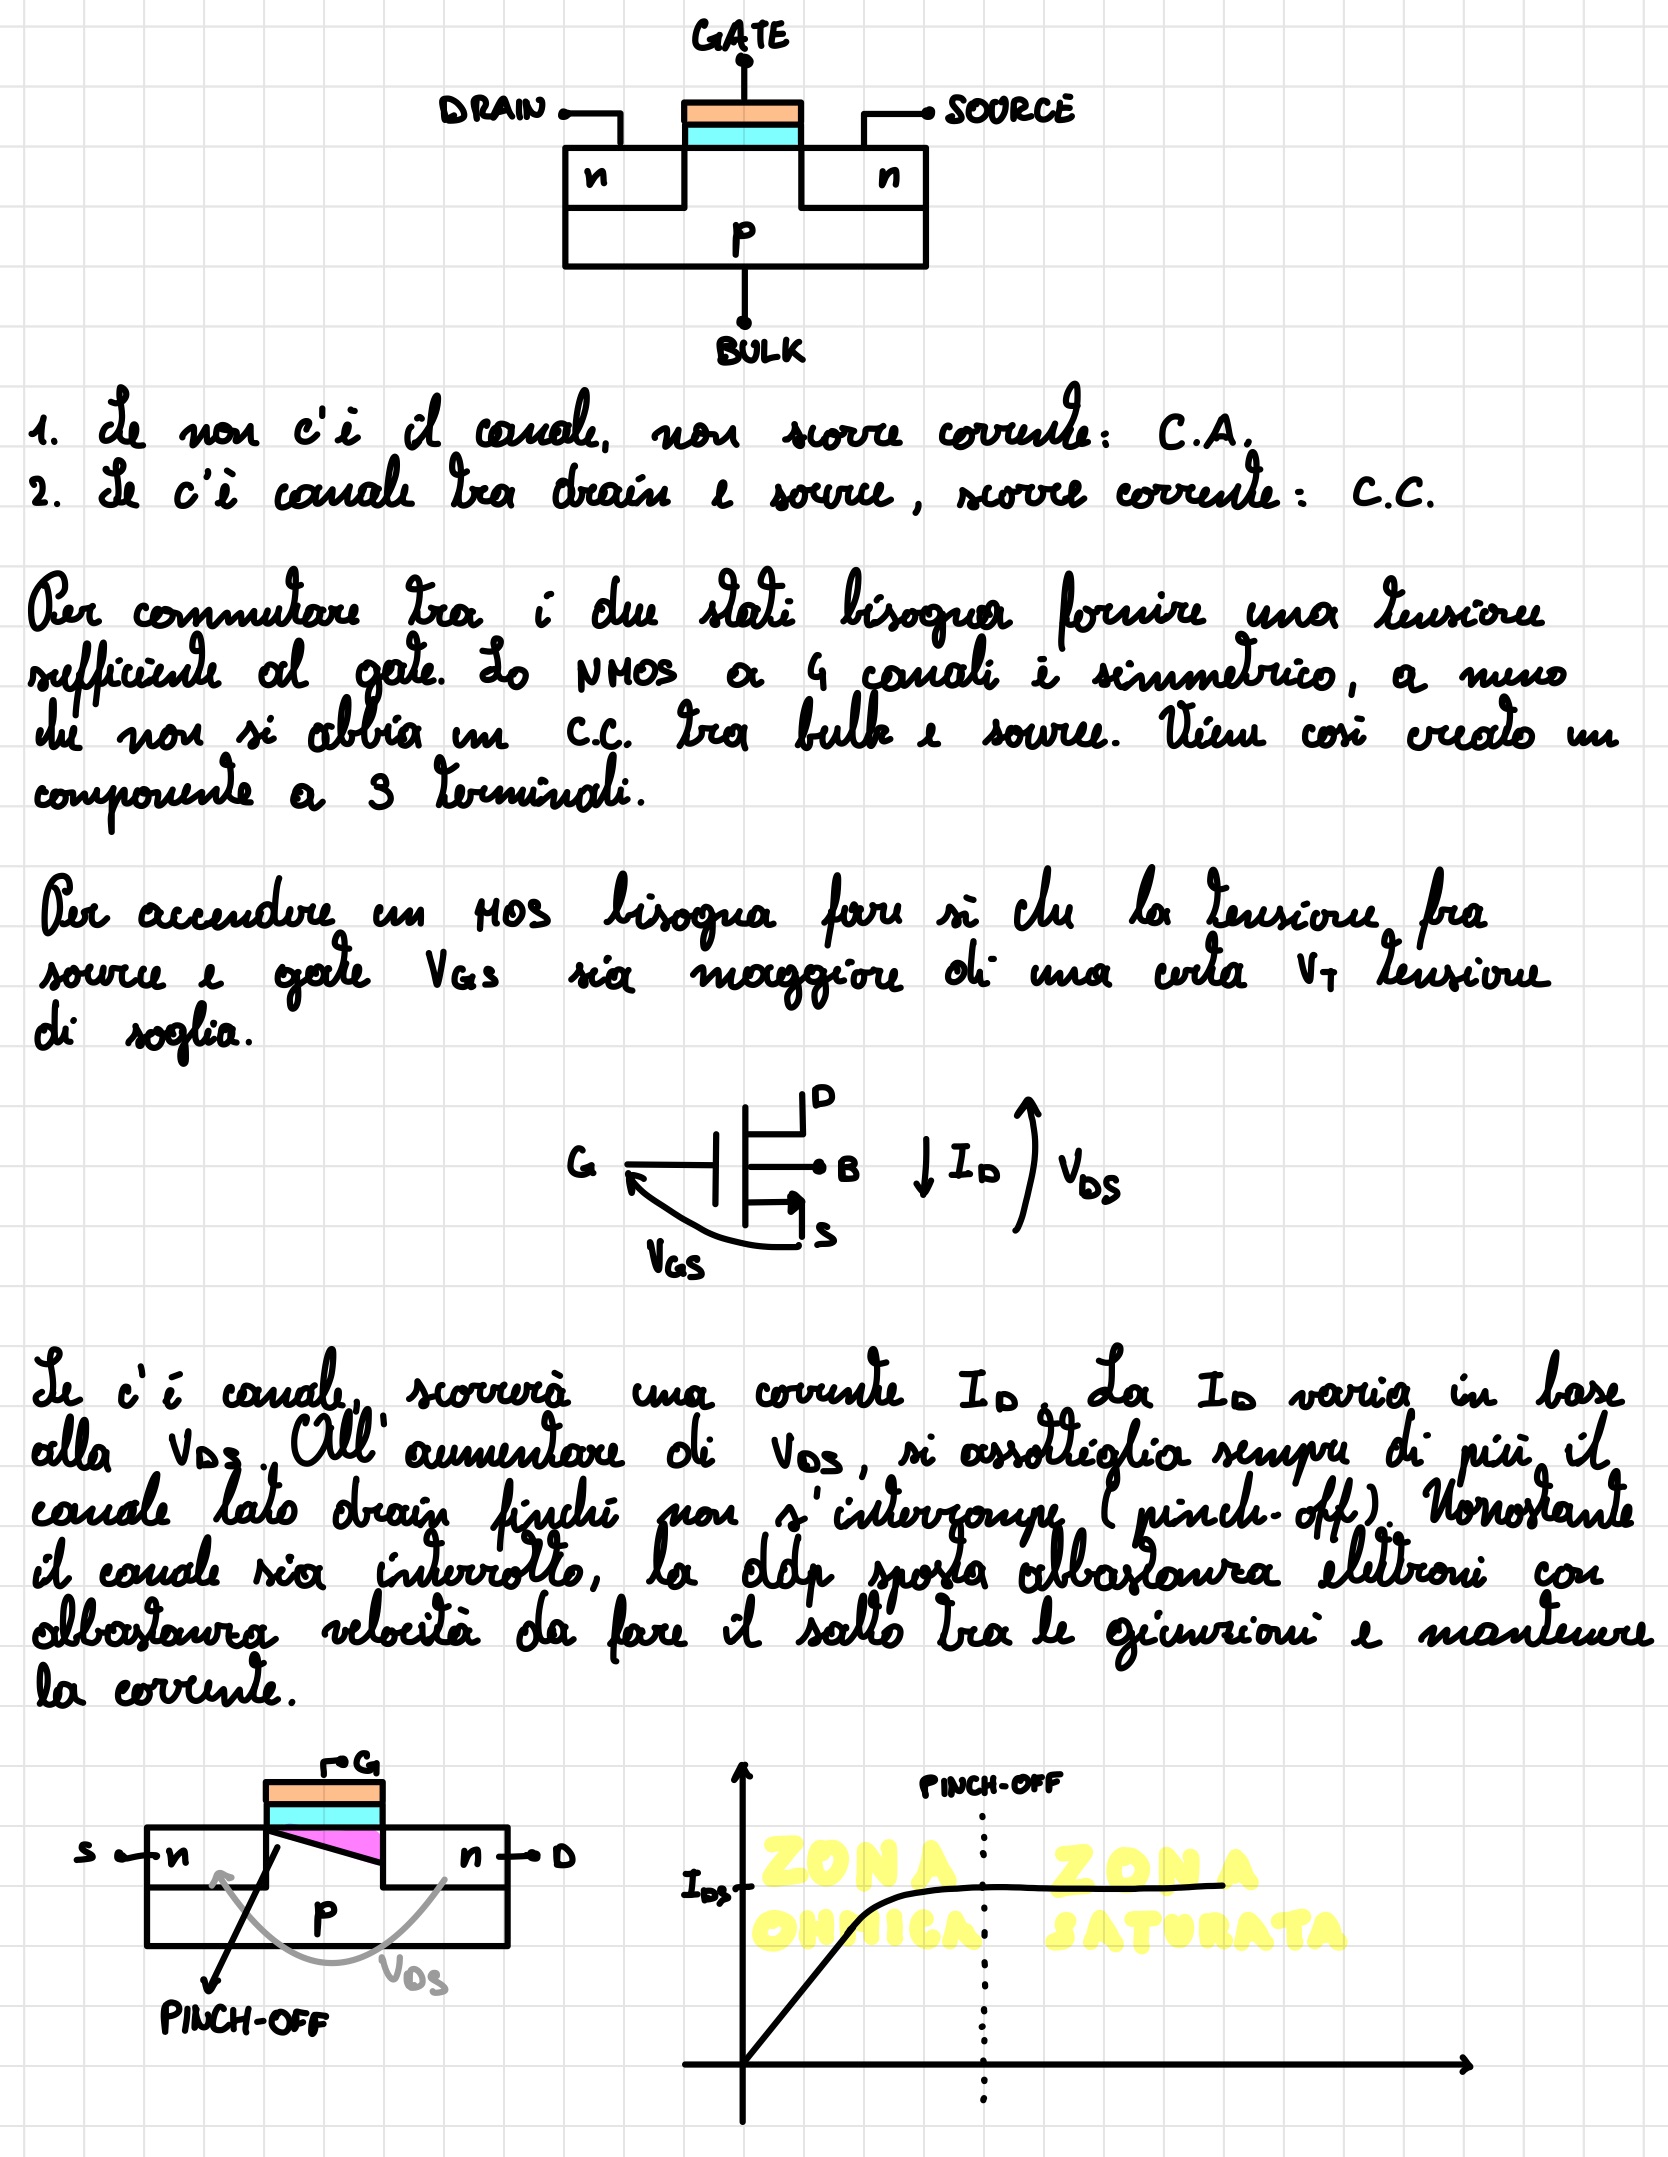 GATE
DRAIN
SOURCE
n
n
p
BULK
1. Se non c'è il canale, non scorre corrente: C.A.
2. Se c'è canale tra drain e source, scorre corrente: C.C.
Per commutare tra i due stati bisogna fornire una tensione
sufficiente al gate. Lo NMOS a 4 canali è simmetrico, a meno
che non si abbia un C.C. tra bulk e source. Viene così creato un
componente a 3 terminali.
Per accendere un MOS bisogna fare sì che la tensione fra
source e gate VGS sia maggiore di una certa VT tensione
di soglia.
D
G
B
ID
VDS
S
VGS
Se c'è canale, scorrerà una corrente ID. La ID varia in base
alla VDS. All'aumentare di VDS, si assottiglia sempre di più il
canale lato drain finché non s'interrompe (pinch-off). Nonostante
il canale sia interrotto, la ddp sposta abbastanza elettroni con
abbastanza velocità da fare il salto tra le giunzioni e mantenere
la corrente.
G
S
n
n
D
p
VDS
PINCH-OFF
PINCH-OFF
ZONA
OHMICA
ZONA
SATURATA
IDS